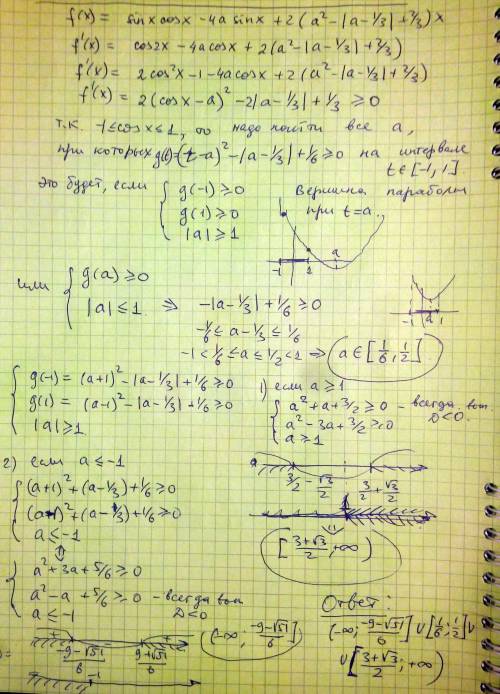 f(x) = sinx cosx - 4a sinx + 2(a² - |a - 1/3| + 2/3)x
f'(x) = cos2x - 4a cosx + 2(a² - |a - 1/3| + 2/3)
f'(x) = 2cos²x - 1 - 4a cosx + 2(a² - |a - 1/3| + 2/3)
f'(x) = 2(cosx - a)² - 2|a - 1/3| + 1/3 ≥ 0
т.к. -1≤cosx≤1, то надо найти все a,
при которых g(t) = (t-a)² - |a - 1/3| + 1/6 ≥ 0 на интервале
t∈[-1, 1].
Это будет, если { g(-1) ≥ 0
g(1) ≥ 0
|a| ≥ 1
Вершина параболы
при t=a.
-1 1 a
или { g(a) ≥ 0
|a| ≤ 1 ⇒ -|a - 1/3| + 1/6 ≥ 0
-1/6 ≤ a - 1/3 ≤ 1/6
-1 < 1/6 ≤ a ≤ 1/2 < 1 ⇒ a∈[1/6, 1/2]
-1 a 1
{ g(-1) = (a+1)² - |a - 1/3| + 1/6 ≥ 0
g(1) = (a-1)² - |a - 1/3| + 1/6 ≥ 0
|a| ≥ 1
1) если a ≥ 1
{ a² + a + 3/2 ≥ 0 - всегда, вот D<0.
a² - 3a + 3/2 ≥ 0
a ≥ 1
3/2 - √3/2 3/2 + √3/2
1
[3+√3/2; +∞)
2) если a ≤ -1
{ (a+1)² + (a - 1/3) + 1/6 ≥ 0
(a-1)² + (a - 1/3) + 1/6 ≥ 0
a ≤ -1
⇕
{ a² + 3a + 5/6 ≥ 0
a² - a + 5/6 ≥ 0 - всегда вот D<0
a ≤ -1
-9-√51/6 -9+√51/6
-1
(-∞; -9-√51/6]
Ответ:
(-∞; -9-√51/6] ∪ [1/6; 1/2] ∪
∪ [3+√3/2; +∞)